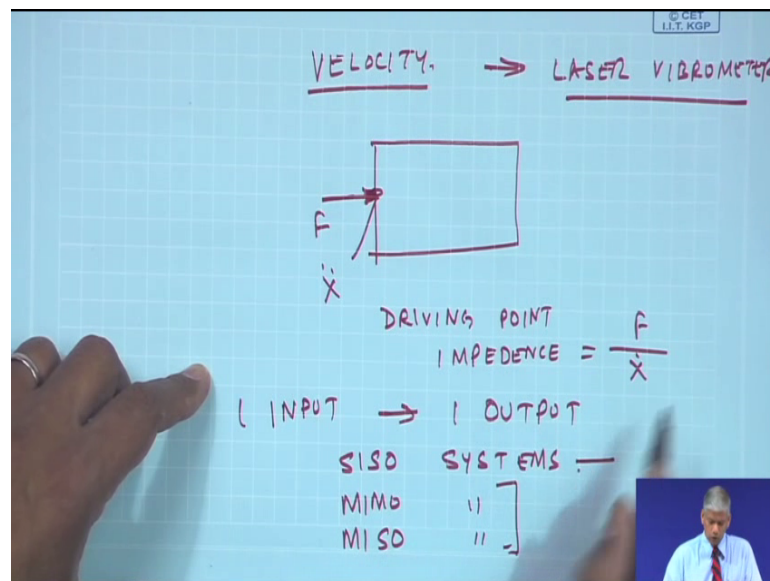 © CET
I.I.T. KGP
VELOCITY. → LASER VIBROMETER
F
Ẍ
DRIVING POINT F
IMPEDENCE = Ẋ
1 INPUT → 1 OUTPUT
SISO SYSTEMS. —
MIMO "
MISO "